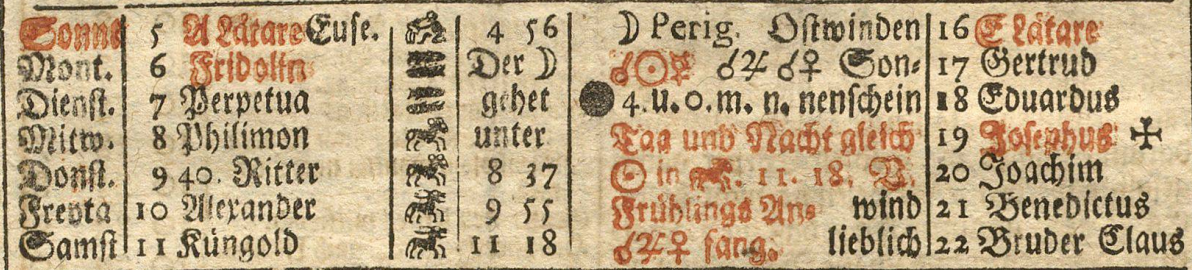 Sonnt 5 A Lätare Euse. 4 56 ☽ Perig. Ostwinden 16 E Lätare
Mont. 6 Fridolin Der ☽ ☌☉☿ ☌♃ ☌♀ Son- 17 Gertrud
Dienst. 7 Perpetua gehet ● 4. u. 0. m. n. nenschein 18 Eduardus
Mittw. 8 Philimon unter Tag und Nacht gleich 19 Josephus ✠
Donst. 9 40. Ritter 8 37 ☉ in ♈. 11. 18. V. 20 Joachim
Freyta 10 Alexander 9 55 Frühlings An- wind 21 Benedictus
Samst 11 Küngold 11 18 ☌♃♀ fang. lieblich 22 Bruder Claus